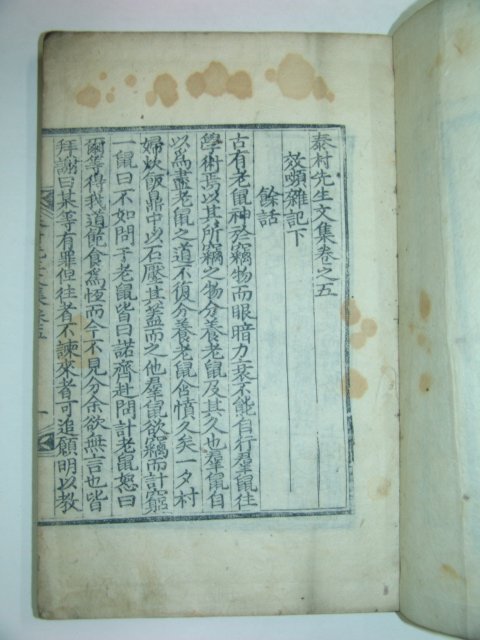 泰村先生文集卷之五
效嚬雜記下
餘話
古有老鼠神於竊物而眼暗力衰不能自行羣鼠往
學術焉以其所竊之物分養老鼠及其久也羣鼠自
以為盡老鼠之道不復分養老鼠含憤久矣一夕村
婦炊飯鼎中以石壓其蓋而之他羣鼠欲竊而計窮
一鼠曰不如問于老鼠皆曰諾齊赴問計老鼠怒曰
爾等得我道飽食爲恒而今不見分余欲無言也皆
拜謝曰某等有罪但往者不諫來者可追願明以教